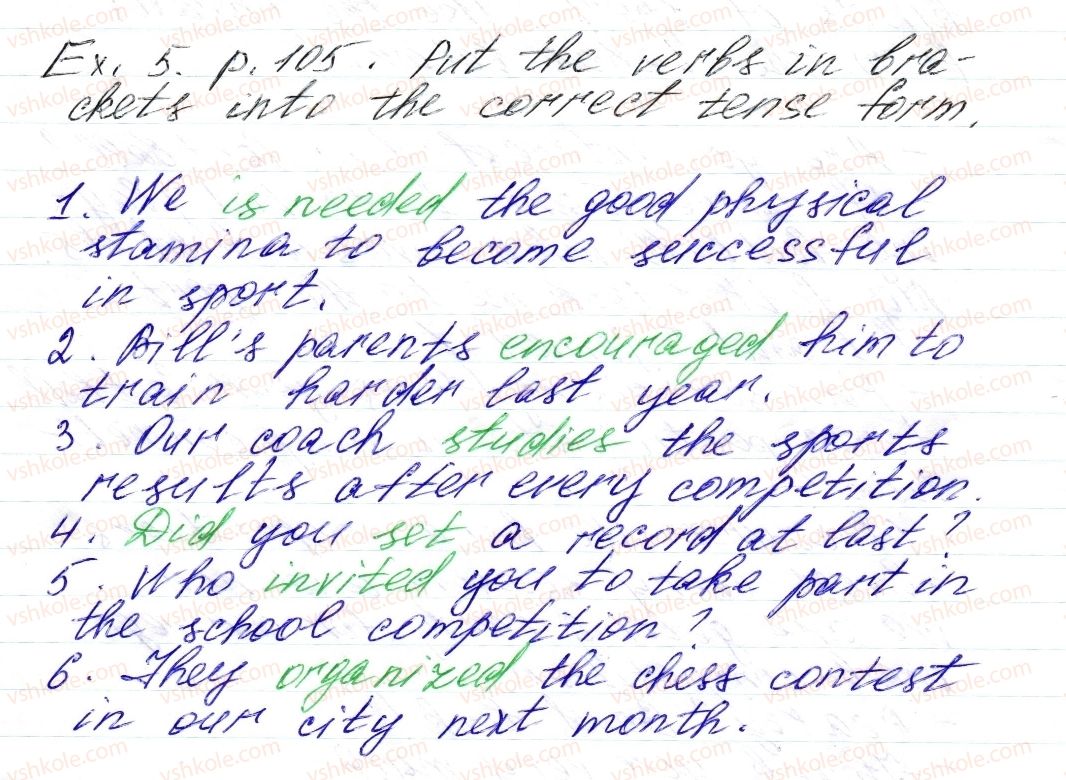 Ex. 5. p. 105. Put the verbs in bra-
ckets into the correct tense form.
1. We is needed the good physical
stamina to become successful
in sport.
2. Bill's parents encouraged him to
train harder last year.
3. Our coach studies the sports
results after every competition.
4. Did you set a record at last?
5. Who invited you to take part in
the school competition?
6. They organized the chess contest
in our city next month.
vshkole.com